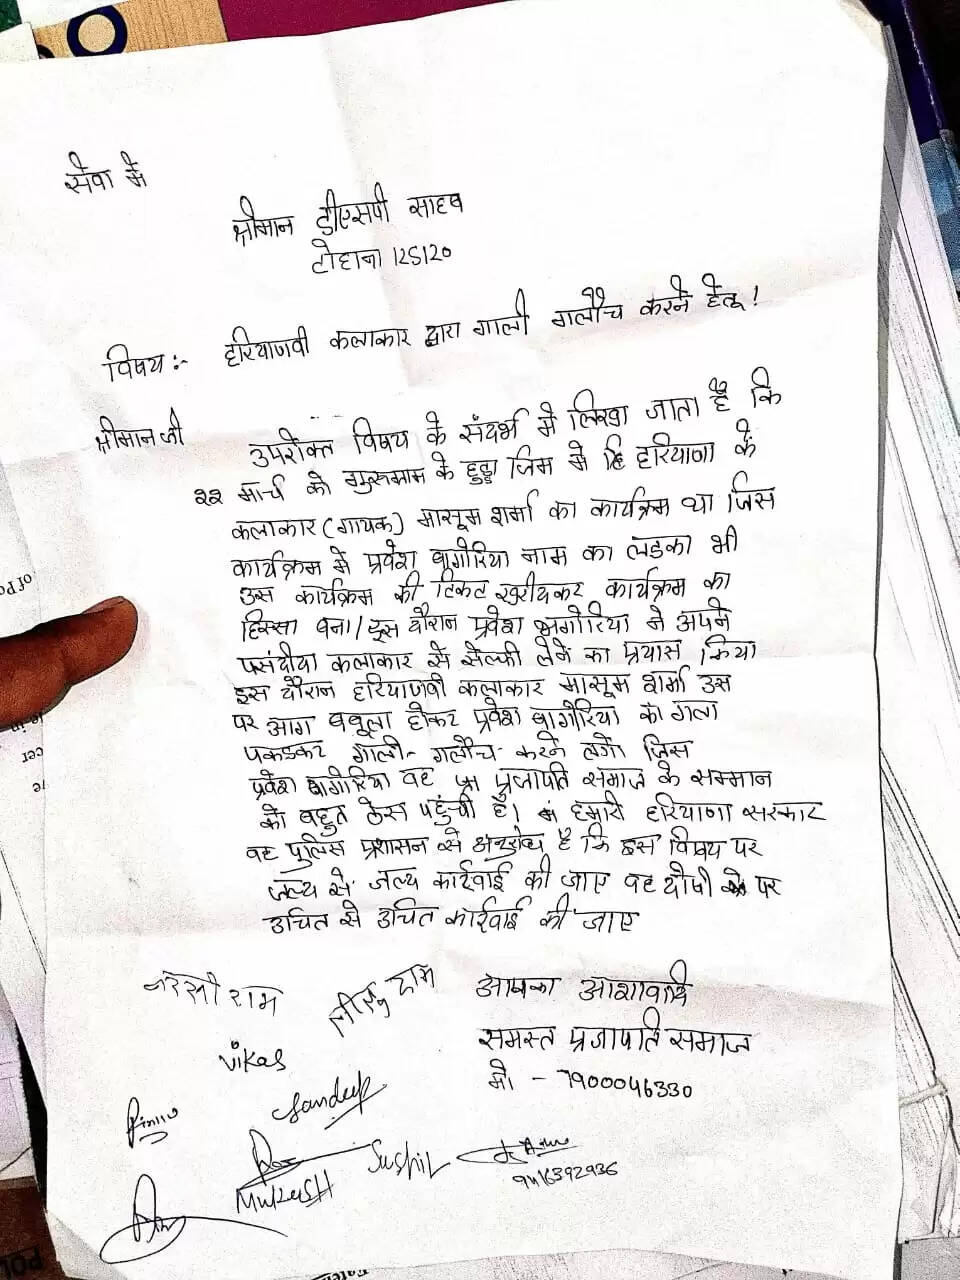 सेवा मे
श्रीमान डीएसपी साहब
टोहाना 125120
विषय :- हरियाणवी कलाकार द्वारा गाली गलौच करने हेतू !
श्रीमान जी
उपरोक्त विषय के संदर्भ मे लिखा जाता है कि
22 मार्च को गुरूग्राम के हुड्डा जिम मे हरियाणा के
कलाकार (गायक) मासूम शर्मा का कार्यक्रम था जिस
कार्यक्रम मे प्रवेश बागोरिया नाम का लडका भी
उस कार्यक्रम की टिकट खरीदकर कार्यक्रम का
हिस्सा बना। इस दौरान प्रवेश बागोरिया ने अपने
पसंदीदा कलाकार से सेल्फी लेने का प्रयास किया
इस दौरान हरियाणवी कलाकार मासूम शर्मा उस
पर आग बबूला होकर प्रवेश बागोरिया का गला
पकडकर गाली - गलौच करने लगे। जिस
प्रवेश बागोरिया वह प्रजापति समाज के सम्मान
को बहुत ठेस पहुंची है। हमारी हरियाणा सरकार
वह पुलिस प्रशासन से अनुरोध है कि इस विषय पर
जल्द से जल्द कार्रवाई की जाए वह दोषी पर
उचित से उचित कार्रवाई की जाए
आपका आशावादि
समस्त प्रजापति समाज
मो - 7900046330
राम
राम
Vikas
Sandeep
Sushil
MUKESH
9416392936